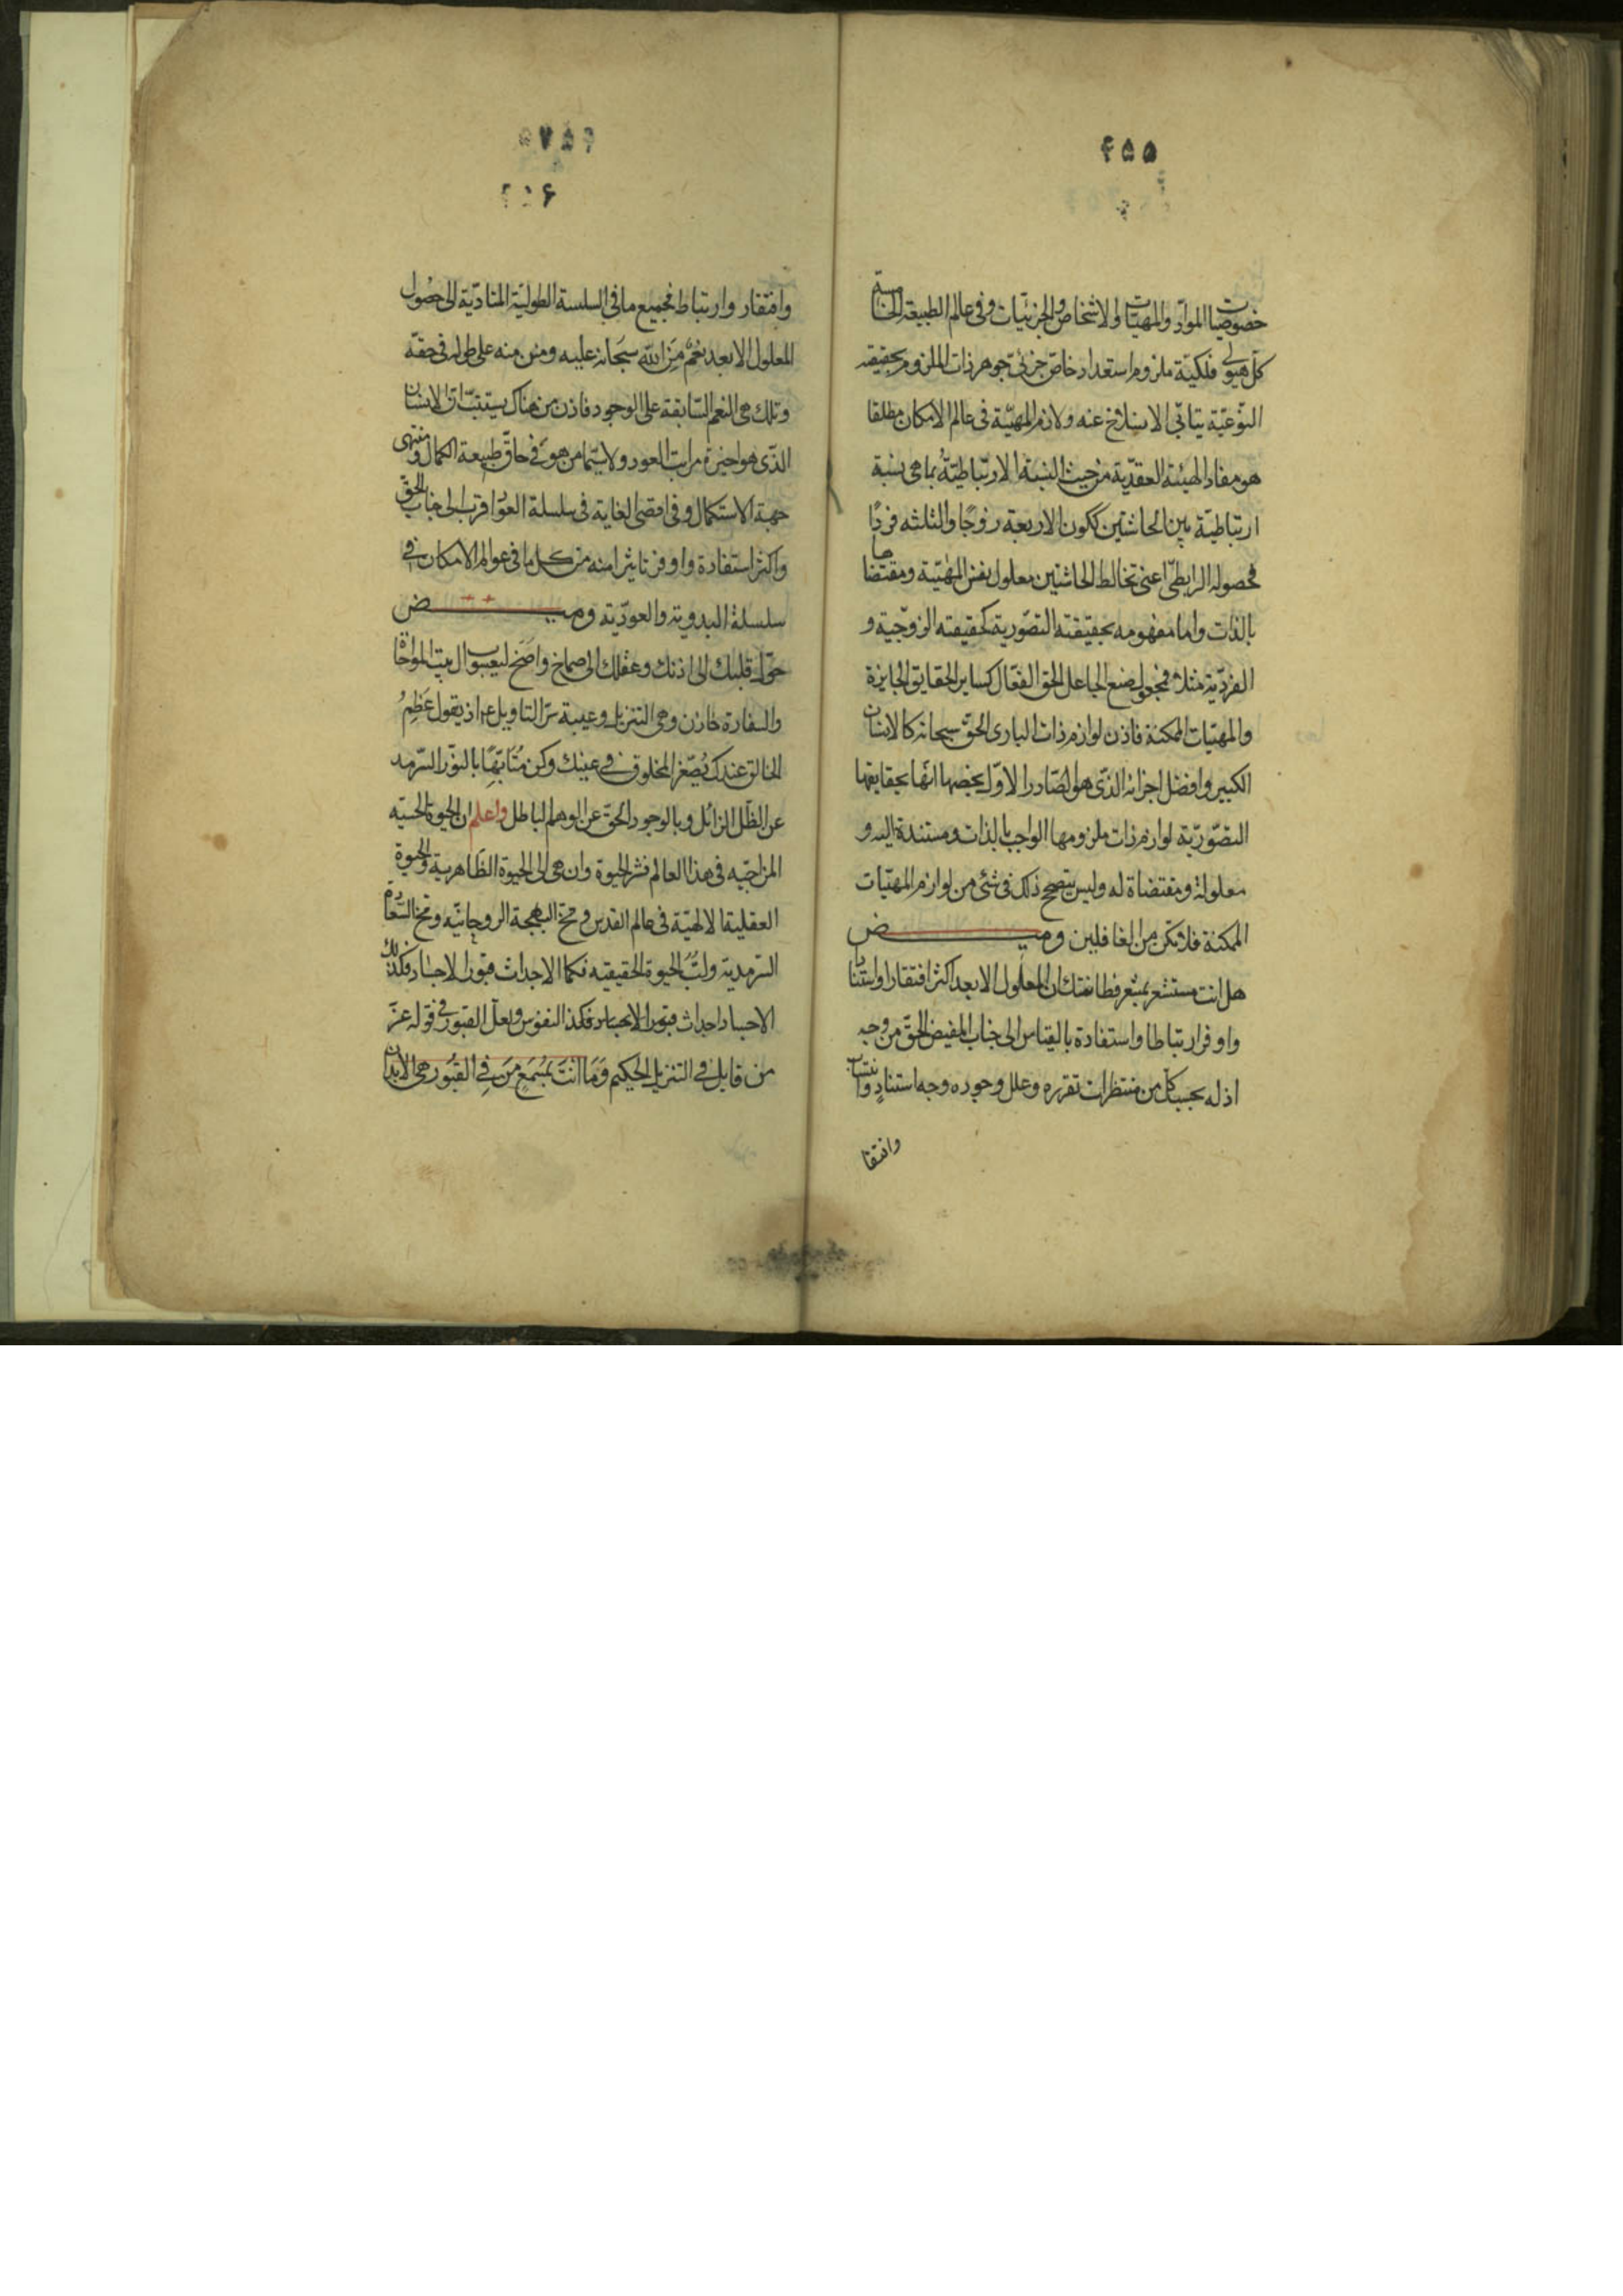 ٤٥٥
خصوصيات المواد والمهيات والاشخاص والجزئيات وفى عالم الطبيعة الخامسة
كل هيولى فلكية ملزوم استعداد خاص جزئى جوهر ذات الملزوم بحقيقته
النوعية يتابى الانسلاخ عنه ولازم المهية فى عالم الامكان مطلقا
هو مفاد الهيئة العقدية من حيث النسبة الارتباطية بما هى نسبة
ارتباطية بين الحاشتين ككون الاربعة زوجًا والثلثه فردًا
فحصوله الرابطى اعنى تخالط الحاشتين معلول نفس المهية ومقتضاها
بالذات واما مفهومه بحقيقته التصورية كحقيقته الزوجية و
الفردية مثلا فمجعول صنع الجاعل الحق الفعال كساير الحقايق الجايزة
والمهيات الممكنة فاذن لوازم ذات البارى الحق سبحانه كالانسان
الكبير وافضل اجزائه الذى هو الصادر الاول يخصها انها بحقايقها
التصورية لوازم ذات ملزومها الواجب بالذات ومستندة اليه و
معلولة ومقتضاة له وليس يتصحح ذلك فى شئ من لوازم المهيات
الممكنة فلا تكن من الغافلين وميـــض
هل انت مستشعر بمشعر فطانتك ان المعلول الابعد اكثر افتقارا واستنادا
واوفر ارتباطا واستفادة بالقياس الى جناب المفيض الحق من وجه
اذ له بحسب كل من منتظرات تقرره وعلل وجوده وجه استنادٍ وانتساب
وافتقا
٤٥٦
وافتقار وارتباط فجميع ما فى السلسة الطولية المتادّية الى حصول
المعلول الابعد نِعَمٌ مِنَ الله سبحانه عليه ومنن منه على طوله فى حقه
وتلك هى النعم السّابقة على الوجود فاذن من هناك يستتب ان الانسان
الذى هو اخيرة مراتب العود ولا سيما من هو فى حاق طبيعة الكمال ومنتهى
جهة الاستكمال وفى اقصى الغاية فى سلسلة العود اقرب الى جناب الحق
واكثر استفادة واوفر تاثيرا منه من كل ما فى عوالم الامكان فى
سلسلة البدوية والعودية وميـــض
حوّل قلبك الى اذنك وعقلك الى صماخ واصخ ليعسوب ال بيت المواخاة
والسفارة خازن وحى التنزيل وعيبة سرّ التاويل ع اذ يقول عَظِمُ
الخالق عندك يُصَغّر المخلوق فى عينك وكن مُتَابّهًا بالنور السرمد
عن الظل الزائل وبالوجود الحق عن الوهم الباطل واعلم ان الحيوة الحسية
المزاجيه فى هذا العالم قشر الحيوة وان هى الى الحيوة الظاهرية والحيوة
العقلية الالهية فى عالم القدس ومخ البهجة الروحانيه ومخ السّعادة
السرمدية ولبُّ الحيوة الحقيقيه فكما الاجداث قبور الاجساد فكذلك
الاجساد اجداث قبور الابحساد فكذا النفوس ولعل القبور فى قوله عزّ
من قايل فى التنزيل الحكيم وَمَا اَنْتَ بمُسْمِعٍ مَن فِى القُبُور هى الابدان